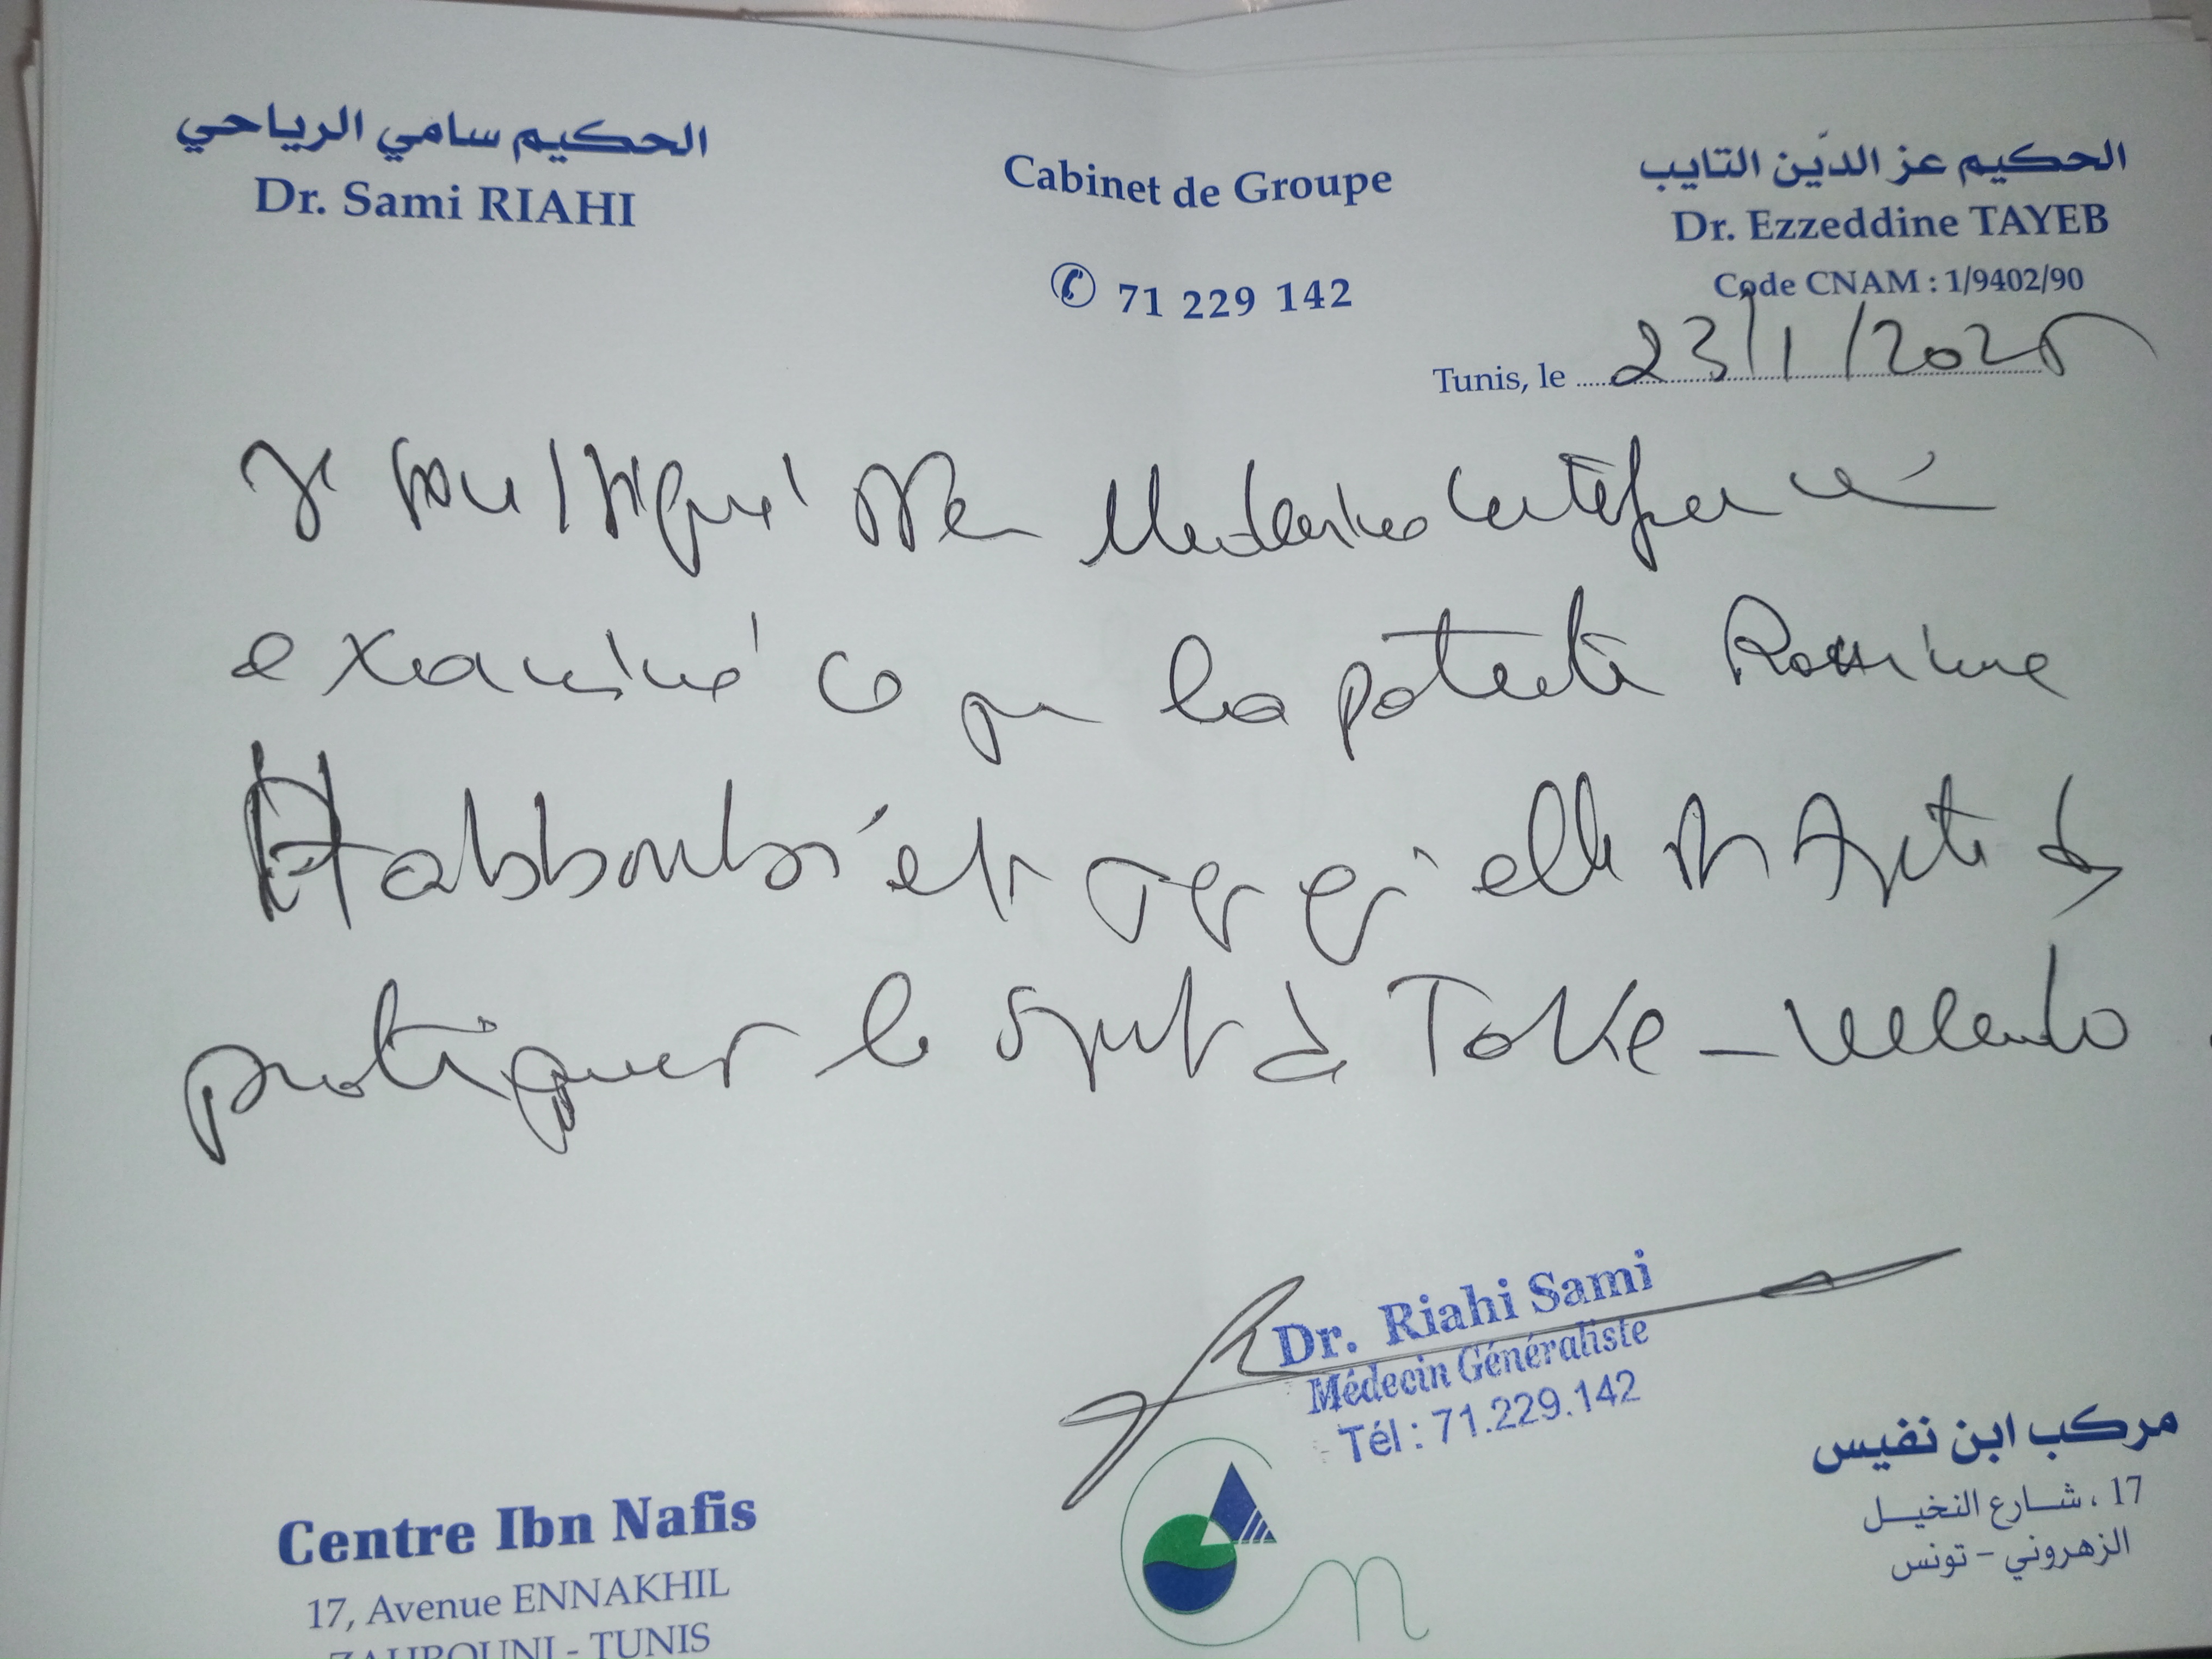 الحكيم سامي الرياحي
Dr. Sami RIAHI
Cabinet de Groupe
71 229 142
الحكيم عز الدّين التايب
Dr. Ezzeddine TAYEB
Code CNAM : 1/9402/90
Tunis, le 23/1/2025
Je soussigné
examiné ce la patiente
Habboubi et elle
pratiquer le sport à
Dr. Riahi Sami
Médecin Généraliste
Tél : 71.229.142
Centre Ibn Nafis
17, Avenue ENNAKHIL
ZAHROUNI - TUNIS
مركب ابن نفيس
17 ، شارع النخيل
الزهروني - تونس